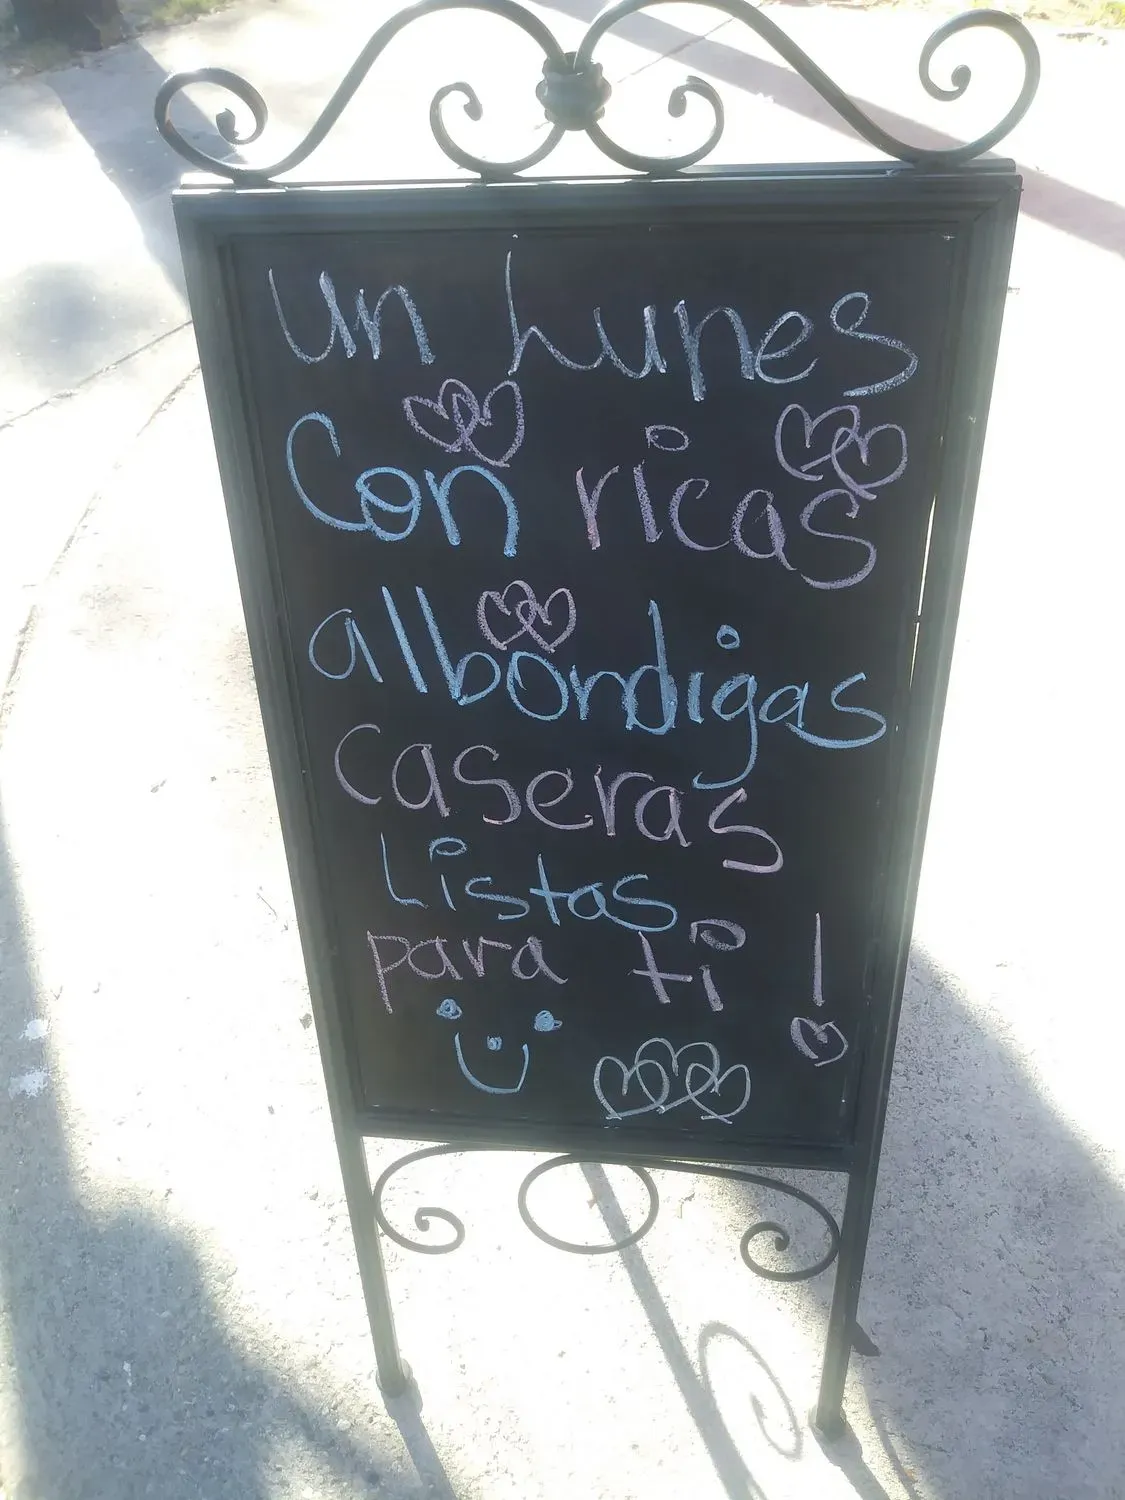 Un Lunes
Con ricas
albondigas
caseras
Listas
para ti!